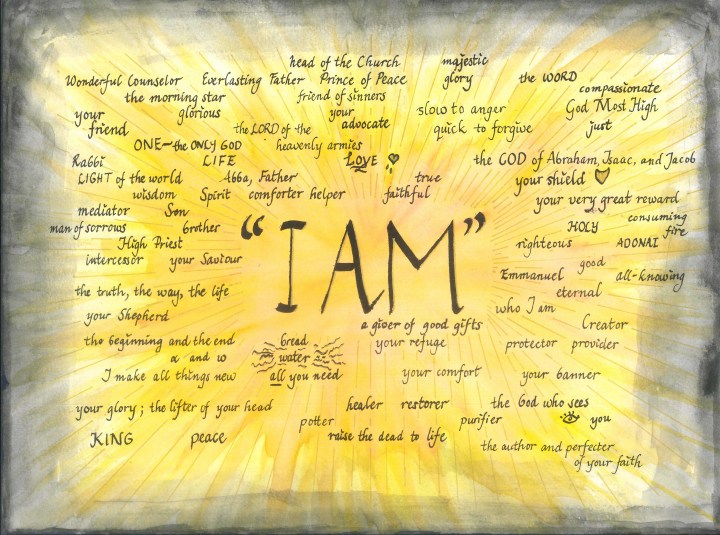 head of the Church majestic
Wonderful Counselor Everlasting Father Prince of Peace glory the WORD
the morning star friend of sinners compassionate
your glorious your slow to anger God Most High
friend the LORD of the advocate quick to forgive just
ONE~the ONLY GOD heavenly armies
Rabbi LIFE LOVE the GOD of Abraham, Isaac, and Jacob
LIGHT of the world Abba, Father true your shield
wisdom Spirit comforter helper faithful your very great reward
mediator Son consuming
man of sorrows brother HOLY fire
High Priest righteous ADONAI
intercessor your Saviour good
"I AM"
Emmanuel all-knowing
the truth, the way, the life eternal
your Shepherd who I am
a giver of good gifts Creator
the beginning and the end bread your refuge protector provider
α and ω water
I make all things new all you need your comfort your banner
your glory; the lifter of your head healer restorer the God who sees
potter purifier you
KING peace raise the dead to life
the author and perfecter
of your faith